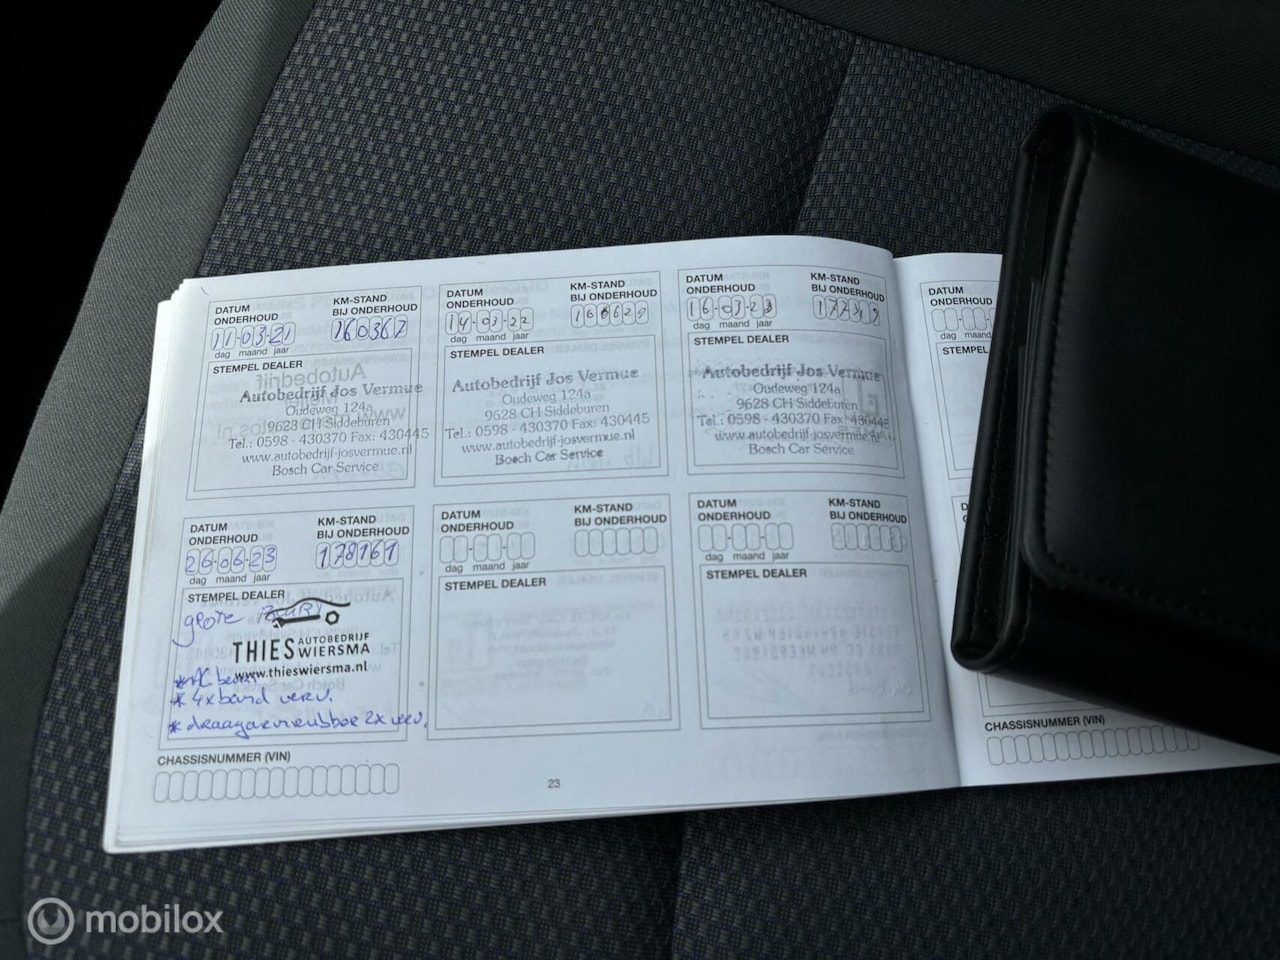 DATUM ONDERHOUD
KM-STAND BIJ ONDERHOUD
11-03-21
160367
dag maand jaar
STEMPEL DEALER
Autobedrijf Jos Vermue
Oudeweg 124a
9628 CH Siddeburen
Tel.: 0598 - 430370 Fax: 430445
www.autobedrijf-josvermue.nl
Bosch Car Service
DATUM ONDERHOUD
KM-STAND BIJ ONDERHOUD
14-03-22
dag maand jaar
STEMPEL DEALER
Autobedrijf Jos Vermue
Oudeweg 124a
9628 CH Siddeburen
Tel.: 0598 - 430370 Fax: 430445
www.autobedrijf-josvermue.nl
Bosch Car Service
DATUM ONDERHOUD
KM-STAND BIJ ONDERHOUD
16-03-23
dag maand jaar
STEMPEL DEALER
Autobedrijf Jos Vermue
Oudeweg 124a
9628 CH Siddeburen
Tel.: 0598 - 430370 Fax: 430445
www.autobedrijf-josvermue.nl
Bosch Car Service
DATUM ONDERHOUD
KM-STAND BIJ ONDERHOUD
26-06-23
178161
dag maand jaar
STEMPEL DEALER
grote beurt
THIES AUTOBEDRIJF WIERSMA
www.thieswiersma.nl
* AC beurt
* 4x band verv.
* draagarmrubber 2x verv.
DATUM ONDERHOUD
KM-STAND BIJ ONDERHOUD
dag maand jaar
STEMPEL DEALER
DATUM ONDERHOUD
KM-STAND BIJ ONDERHOUD
dag maand jaar
STEMPEL DEALER
CHASSISNUMMER (VIN)
23
DATUM ONDERHOUD
dag
STEMPEL
CHASSISNUMMER (VIN)
mobilox